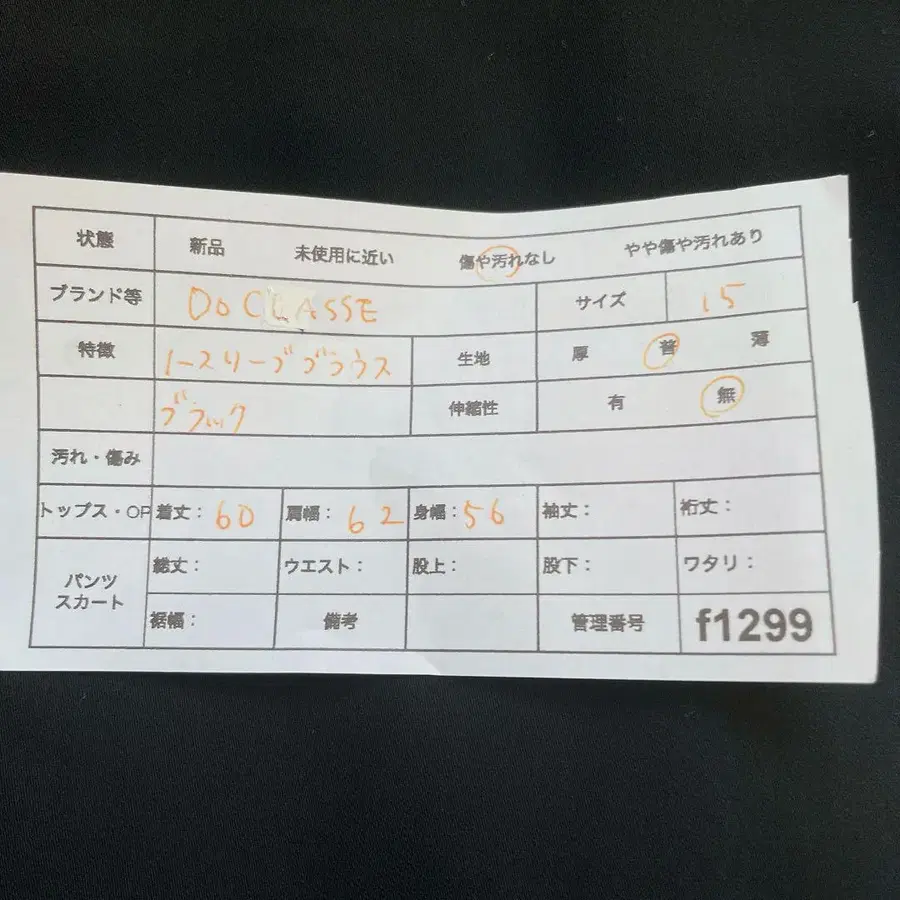 状態 新品 未使用に近い 傷や汚れなし やや傷や汚れあり
ブランド等 DoCLASSE サイズ 15
特徴 ノースリーブブラウス 生地 厚 普 薄
ブラック 伸縮性 有 無
汚れ・傷み
トップス・OP 着丈: 60 肩幅: 62 身幅: 56 袖丈: 裄丈:
パンツ スカート 総丈: ウエスト: 股上: 股下: ワタリ:
裾幅: 備考 管理番号 f1299